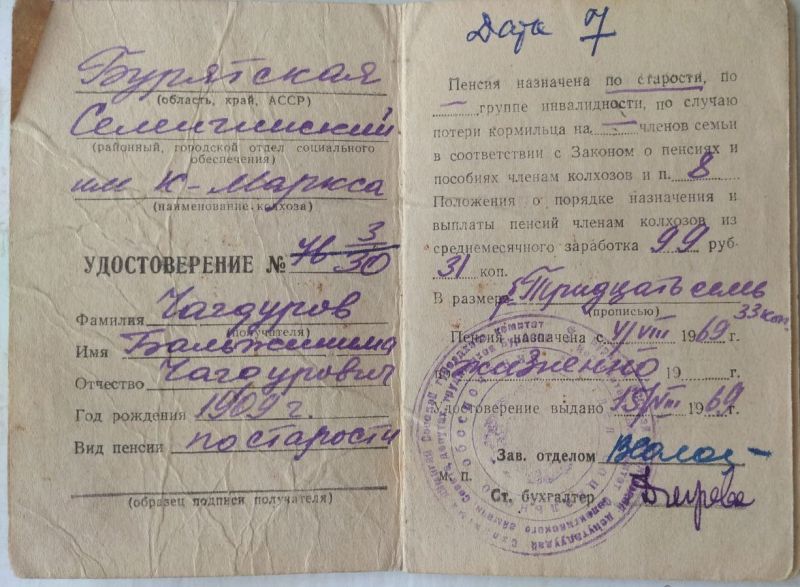 Бурятская
(область, край, АССР)
Селенгинский
(районный, городской отдел социального
обеспечения)
им К-Маркса
(наименование колхоза)
УДОСТОВЕРЕНИЕ № 3/30
Фамилия Чагдуров
(получателя)
Имя Бальжинима
Отчество Чагдурович
Год рождения 1909 г.
Вид пенсии по старости
(образец подписи получателя)
Дата 7
Пенсия назначена по старости, по
— группе инвалидности, по случаю
потери кормильца на — членов семьи
в соответствии с Законом о пенсиях и
пособиях членам колхозов и п. 8
Положения о порядке назначения и
выплаты пенсий членам колхозов из
среднемесячного заработка 99 руб.
31 коп.
В размере Тридцать семь
(прописью) 33 коп.
Пенсия назначена с 4/VIII 1969 г.
пожизненно 19 г.
Удостоверение выдано 15/VIII 1969 г.
Зав. отделом
М. п.
Ст. бухгалтер